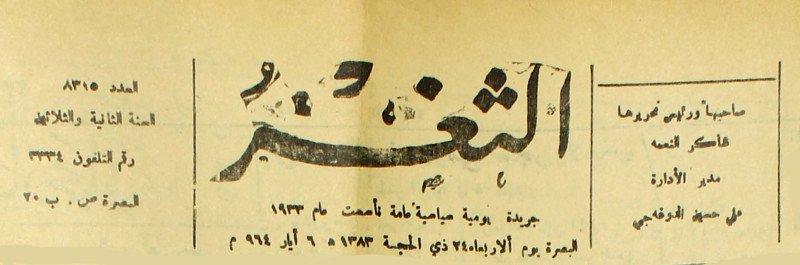 صاحبها ورئيس تحريرها
شاكر النعمه
مدير الأدارة
علي حسين
الثغر
جريدة يومية سياسية عامة تأسست عام ١٩٣٣
البصرة يوم ألاربعاء ٢٤ ذي الحجة ١٣٨٣ ه ٦ أيار ٩٦٤ م
العدد ٨٣١٥
السنة الثانية والثلاثين
رقم التلفون ٣٣٣٤
البصرة ص . ب ٢٠